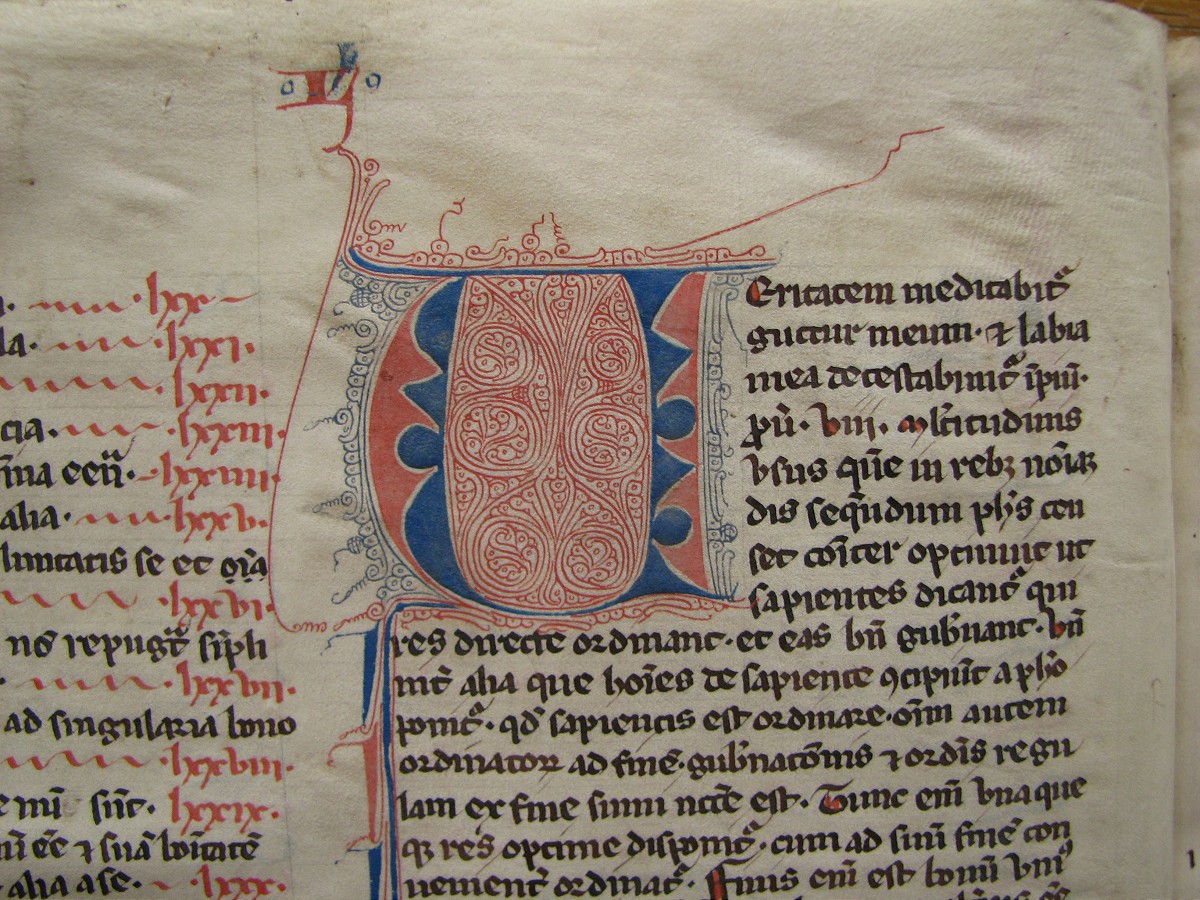 · lxx
la · lxxi·
lxxii·
cia · lxxiii·
lxxiiii·
alia · lxxv·
luntatis se et oīa
lxxvi·
nō repugt᷑ sīpli
lxxvii·
ad singularia bono
lxxviii·
e mī sūt· lxxix·
ēē ⁊ suā boītatē
alia a se · lxxx·
U
Eritatem meditabit᷑
guttur meum· ⁊ labia
mea detestabunt᷑ īpiū·
pū· viii· mltitudinis
vsus quē in rebꝫ noīā
dis seq̄ndum phs cen
set cōiter optinuit ut
sapientes dicant᷑ qui
res directe ordinant· et eas bn̄ gub̾nant· vn̄
int᷑ alia que hoīes de sapiente ꝯcipiūt a pho
ponit᷑· qd̓ sapientis est ordinare· oīm autem
ordinatoꝝ ad finē gub̾natōnis ⁊ ordīs regu
lam ex fine sumi ncc̄e est· Tunc enī vnaque
qꝫ res optime disponit᷑· cum ad suū finē con
uenient̾ ordinat᷑· Finis enī est bonū vniꝰ